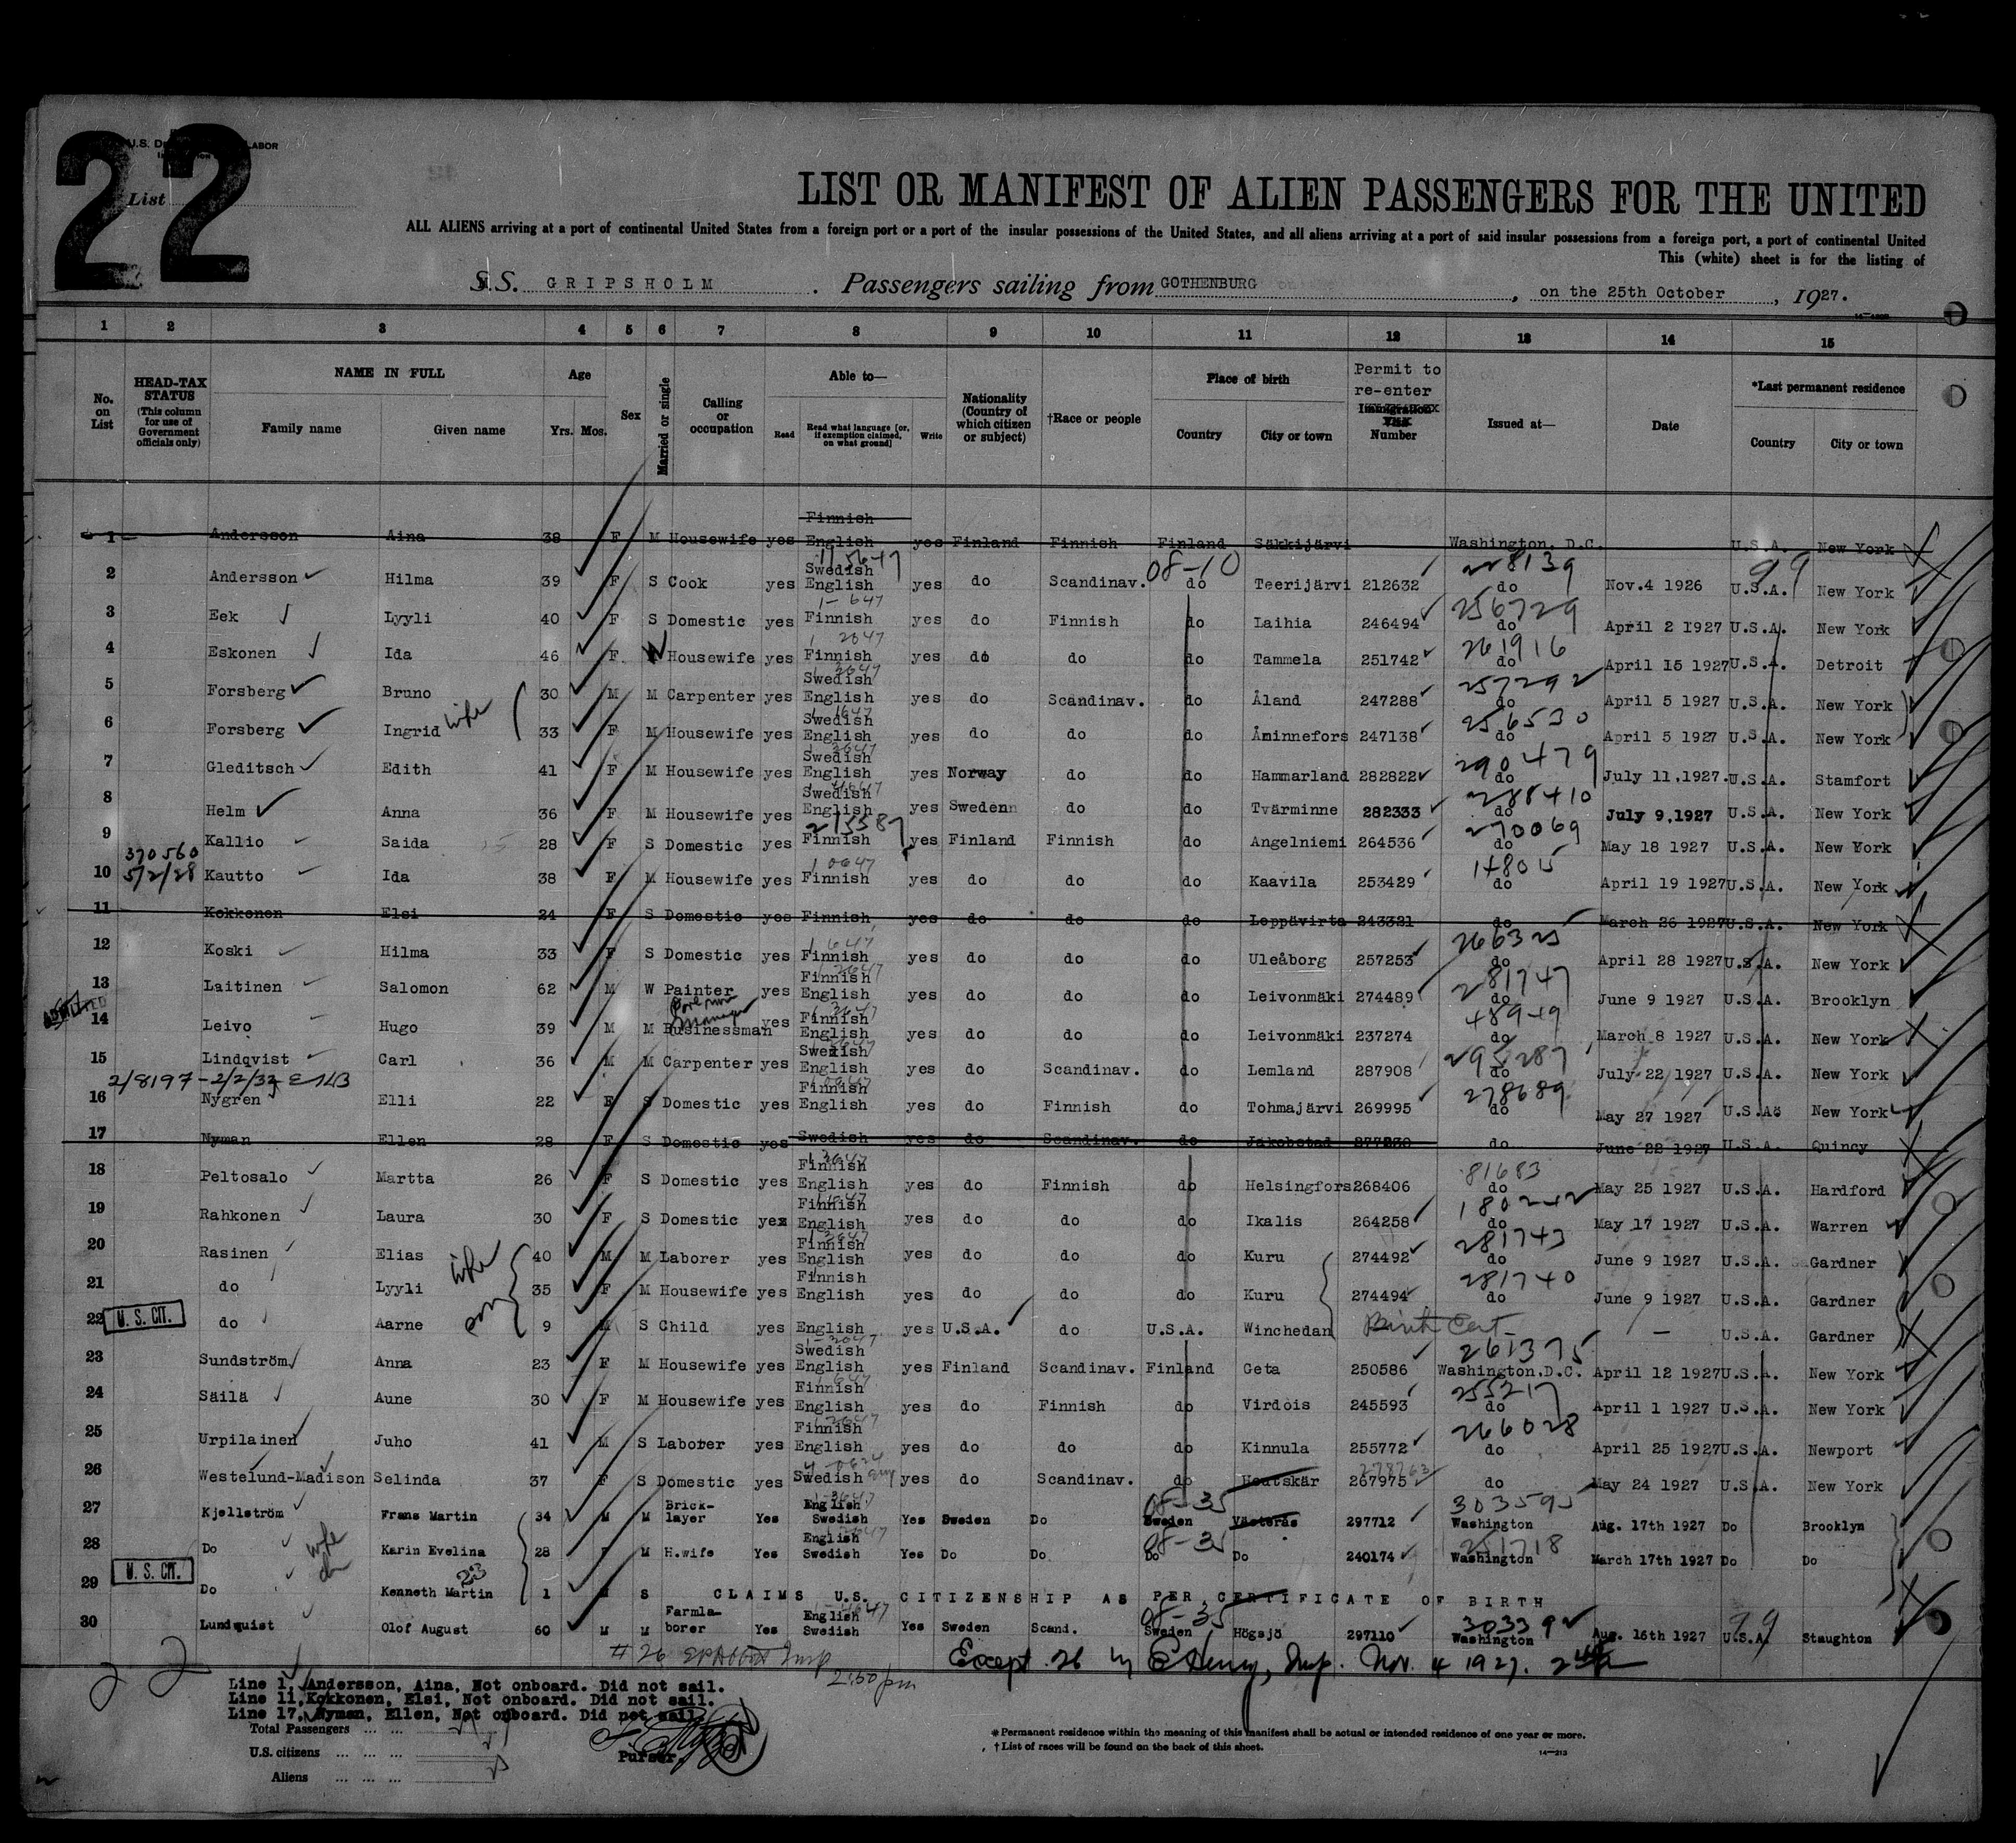 22
U.S. De LABOR
List
LIST OR MANIFEST OF ALIEN PASSENGERS FOR THE UNITED
ALL ALIENS arriving at a port of continental United States from a foreign port or a port of the insular possessions of the United States, and all aliens arriving at a port of said insular possessions from a foreign port, a port of continental United
This (white) sheet is for the listing of
S.S. GRIPSHOLM . Passengers sailing from GOTHENBURG , on the 25th October , 1927.
1 2 3 4 5 6 7 8 9 10 11 12 13 14 15
No. on List
HEAD-TAX STATUS (This column for use of Government officials only)
NAME IN FULL
Family name Given name
Age
Yrs. Mos.
Sex
Married or single
Calling or occupation
Able to—
Read Read what language [or, if exemption claimed, on what ground] Write
Nationality (Country of which citizen or subject)
†Race or people
Place of birth
Country City or town
Permit to re-enter
Immigration
Number
Issued at—
Date
*Last permanent residence
Country City or town
1 Andersson Aina 38 F M Housewife yes Finnish English yes Finland Finnish Finland Säkkijärvi Washington, D.C. U.S.A. New York
2 Andersson Hilma 39 F S Cook yes Swedish English yes do Scandinav. 08-10 do Teerijärvi 212632 do Nov.4 1926 U.S.A. 99 New York
3 Eek Lyyli 40 F S Domestic yes 1- 647 Finnish yes do Finnish do Laihia 246494 256729 do April 2 1927 U.S.A. New York
4 Eskonen Ida 46 F Housewife yes 1 2047 Finnish yes do do do Tammela 251742 261916 do April 15 1927 U.S.A. Detroit
5 Forsberg Bruno 30 M M Carpenter yes Swedish English yes do Scandinav. do Åland 247288 257292 do April 5 1927 U.S.A. New York
6 Forsberg Ingrid wife 33 F M Housewife yes Swedish English yes do do do Åminnefors 247138 256530 do April 5 1927 U.S.A. New York
7 Gleditsch Edith 41 F M Housewife yes Swedish English yes Norway do do Hammarland 282822 290479 do July 11,1927. U.S.A. Stamfort
8 Helm Anna 36 F M Housewife yes Swedish English yes Swedenn do do Tvärminne 282333 288410 do July 9,1927 U.S.A. New York
9 Kallio Saida 28 F S Domestic yes Finnish yes Finland Finnish do Angelniemi 264536 270069 do May 18 1927 U.S.A. New York
370560
10 5/2/28 Kautto Ida 38 F M Housewife yes Finnish yes do do do Kaavila 253429 148015 do April 19 1927 U.S.A. New York
11 Kokkonen Elsi 24 F S Domestic yes Finnish yes do do do Leppävirta 243321 do March 26 1927 U.S.A. New York
12 Koski Hilma 33 F S Domestic yes Finnish yes do do do Uleåborg 257253 266325 do April 28 1927 U.S.A. New York
13 Laitinen Salomon 62 M W Painter yes Finnish English yes do do do Leivonmäki 274489 281747 do June 9 1927 U.S.A. Brooklyn
ADMITTED
14 Leivo Hugo 39 M M Businessman yes Finnish English yes do do do Leivonmäki 237274 48949 do March 8 1927 U.S.A. New York
15 Lindqvist Carl 36 M M Carpenter yes Swedish English yes do Scandinav. do Lemland 287908 295287 do July 22 1927 U.S.A. New York
2/8197 - 2/2/32
16 Nygren Elli 22 F S Domestic yes Finnish English yes do Finnish do Tohmajärvi 269995 278689 do May 27 1927 U.S.Aö New York
17 Nyman Ellen 28 F S Domestic yes Swedish yes do Scandinav. do Jakobstad do June 22 1927 U.S.A. Quincy
18 Peltosalo Martta 26 F S Domestic yes Finnish English yes do Finnish do Helsingfors 268406 81683 do May 25 1927 U.S.A. Hardford
19 Rahkonen Laura 30 F S Domestic yes Finnish English yes do do do Ikalis 264258 180242 do May 17 1927 U.S.A. Warren
20 Rasinen Elias 40 M M Laborer yes Finnish English yes do do do Kuru 274492 281743 do June 9 1927 U.S.A. Gardner
21 do Lyyli wife 35 F M Housewife yes Finnish English yes do do do Kuru 274494 281740 do June 9 1927 U.S.A. Gardner
22 U. S. CIT. do Aarne son 9 M S Child yes English yes U.S.A. do U.S.A. Winchedan Birth Cert - — U.S.A. Gardner
23 Sundström Anna 23 F M Housewife yes Swedish English yes Finland Scandinav. Finland Geta 250586 261375 Washington.D.C. April 12 1927 U.S.A. New York
24 Säilä Aune 30 F M Housewife yes Finnish English yes do Finnish do Virdois 245593 255217 do April 1 1927 U.S.A. New York
25 Urpilainen Juho 41 M S Laborer yes Finnish English yes do do do Kinnula 255772 266028 do April 25 1927 U.S.A. Newport
26 Westelund-Madison Selinda 37 F S Domestic yes Swedish Eng yes do Scandinav. do Houtskär 267975 278763 do May 24 1927 U.S.A. New York
27 Kjellström Frans Martin 34 M M Brick-layer Yes English Swedish Yes Sweden Do 08-35 Sweden Västerås 297712 303595 Washington Aug. 17th 1927 Do Brooklyn
28 Do wife Karin Evelina 28 F M H.wife Yes English Swedish Yes Do Do 08-35 Do Do 240174 251718 Washington March 17th 1927 Do Do
29 U. S. CIT. Do Kenneth Martin 23 1 M S CLAIMS U.S. CITIZENSHIP AS PER CERTIFICATE OF BIRTH
30 Lundquist Olof August 60 M M Farmla-borer Yes English Swedish Yes Sweden Scand. 08-35 Sweden Högsjö 297110 303392 Washington Aug. 16th 1927 U.S.A. 99 Staughton
# 26 Insp 2:50 pm
Except 26 by E Henry, Insp. Nov. 4 1927.
22
Line 1, Andersson, Aina, Not onboard. Did not sail.
Line 11, Kokkonen, Elsi, Not onboard. Did not sail.
Line 17, Nyman, Ellen, Not onboard. Did not sail.
Total Passengers ... ...
U.S. citizens ... ... ...
Aliens ... ... ...
Purser.
* Permanent residence within the meaning of this manifest shall be actual or intended residence of one year or more.
† List of races will be found on the back of this sheet.
14—213